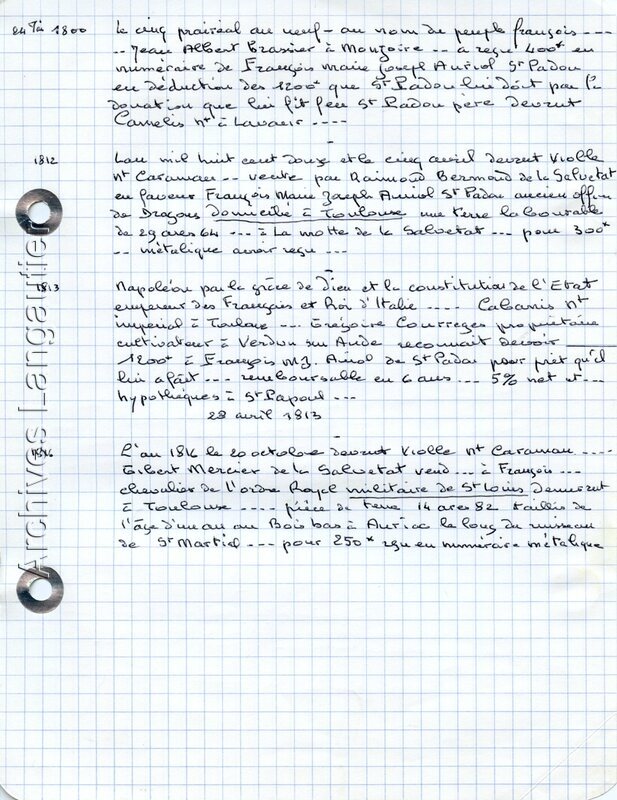 24 Mai 1800
Le cinq prairéal an neuf - au nom du peuple françois ----
-- Jean Albert Brassier à Monjoire -- a reçu 400# en
numéraire de François marie joseph Auriol St Padou
en déduction des 1200# que St Padou lui doit par la
donation que lui fit feu St Padou père devant
Camelis nt à Lavaur ----
1812
L'an mil huit cent douze et le cinq avril devant Violle
nt Caraman -- vente par Raimond Bermond de la Salvetat
en faveur François Marie Joseph Auriol St Padou ancien offier
de Dragons domicilié à Toulouse une terre labourable
de 29 ares 64 --- à La motte de la Salvetat --- pour 300#
-- métalique avoir reçu ---
1813
Napoléon par la grâce de Dieu et la constitution de l'Etat
empereur des Français et Roi d'Italie ---- Cabanis nt
impérial à Toulouse --- Grégoire Courreges propriétaire
cultivateur à Verdun sur Aude reconnait devoir
1200# à François m.J. Auriol de St Padou pour prêt qu'il
lui a fait --- remboursable en 6 ans --- 5% net et --
hypothéqués à St Papoul ---
28 avril 1813
1816
L'an 1816 le 20 octobre devant Violle nt Caraman ----
Gilbert Mercier de la Salvetat vend --- à François ---
chevalier de l'ordre Royal militaire de St Louis demeurant
à Toulouse ---- pièce de terre 14 ares 82 taillis de
l'âge d'un an au Bois bas à Auriac le long du ruisseau
de St Martial --- pour 250# reçu en numéraire métalique
Archives Langautier